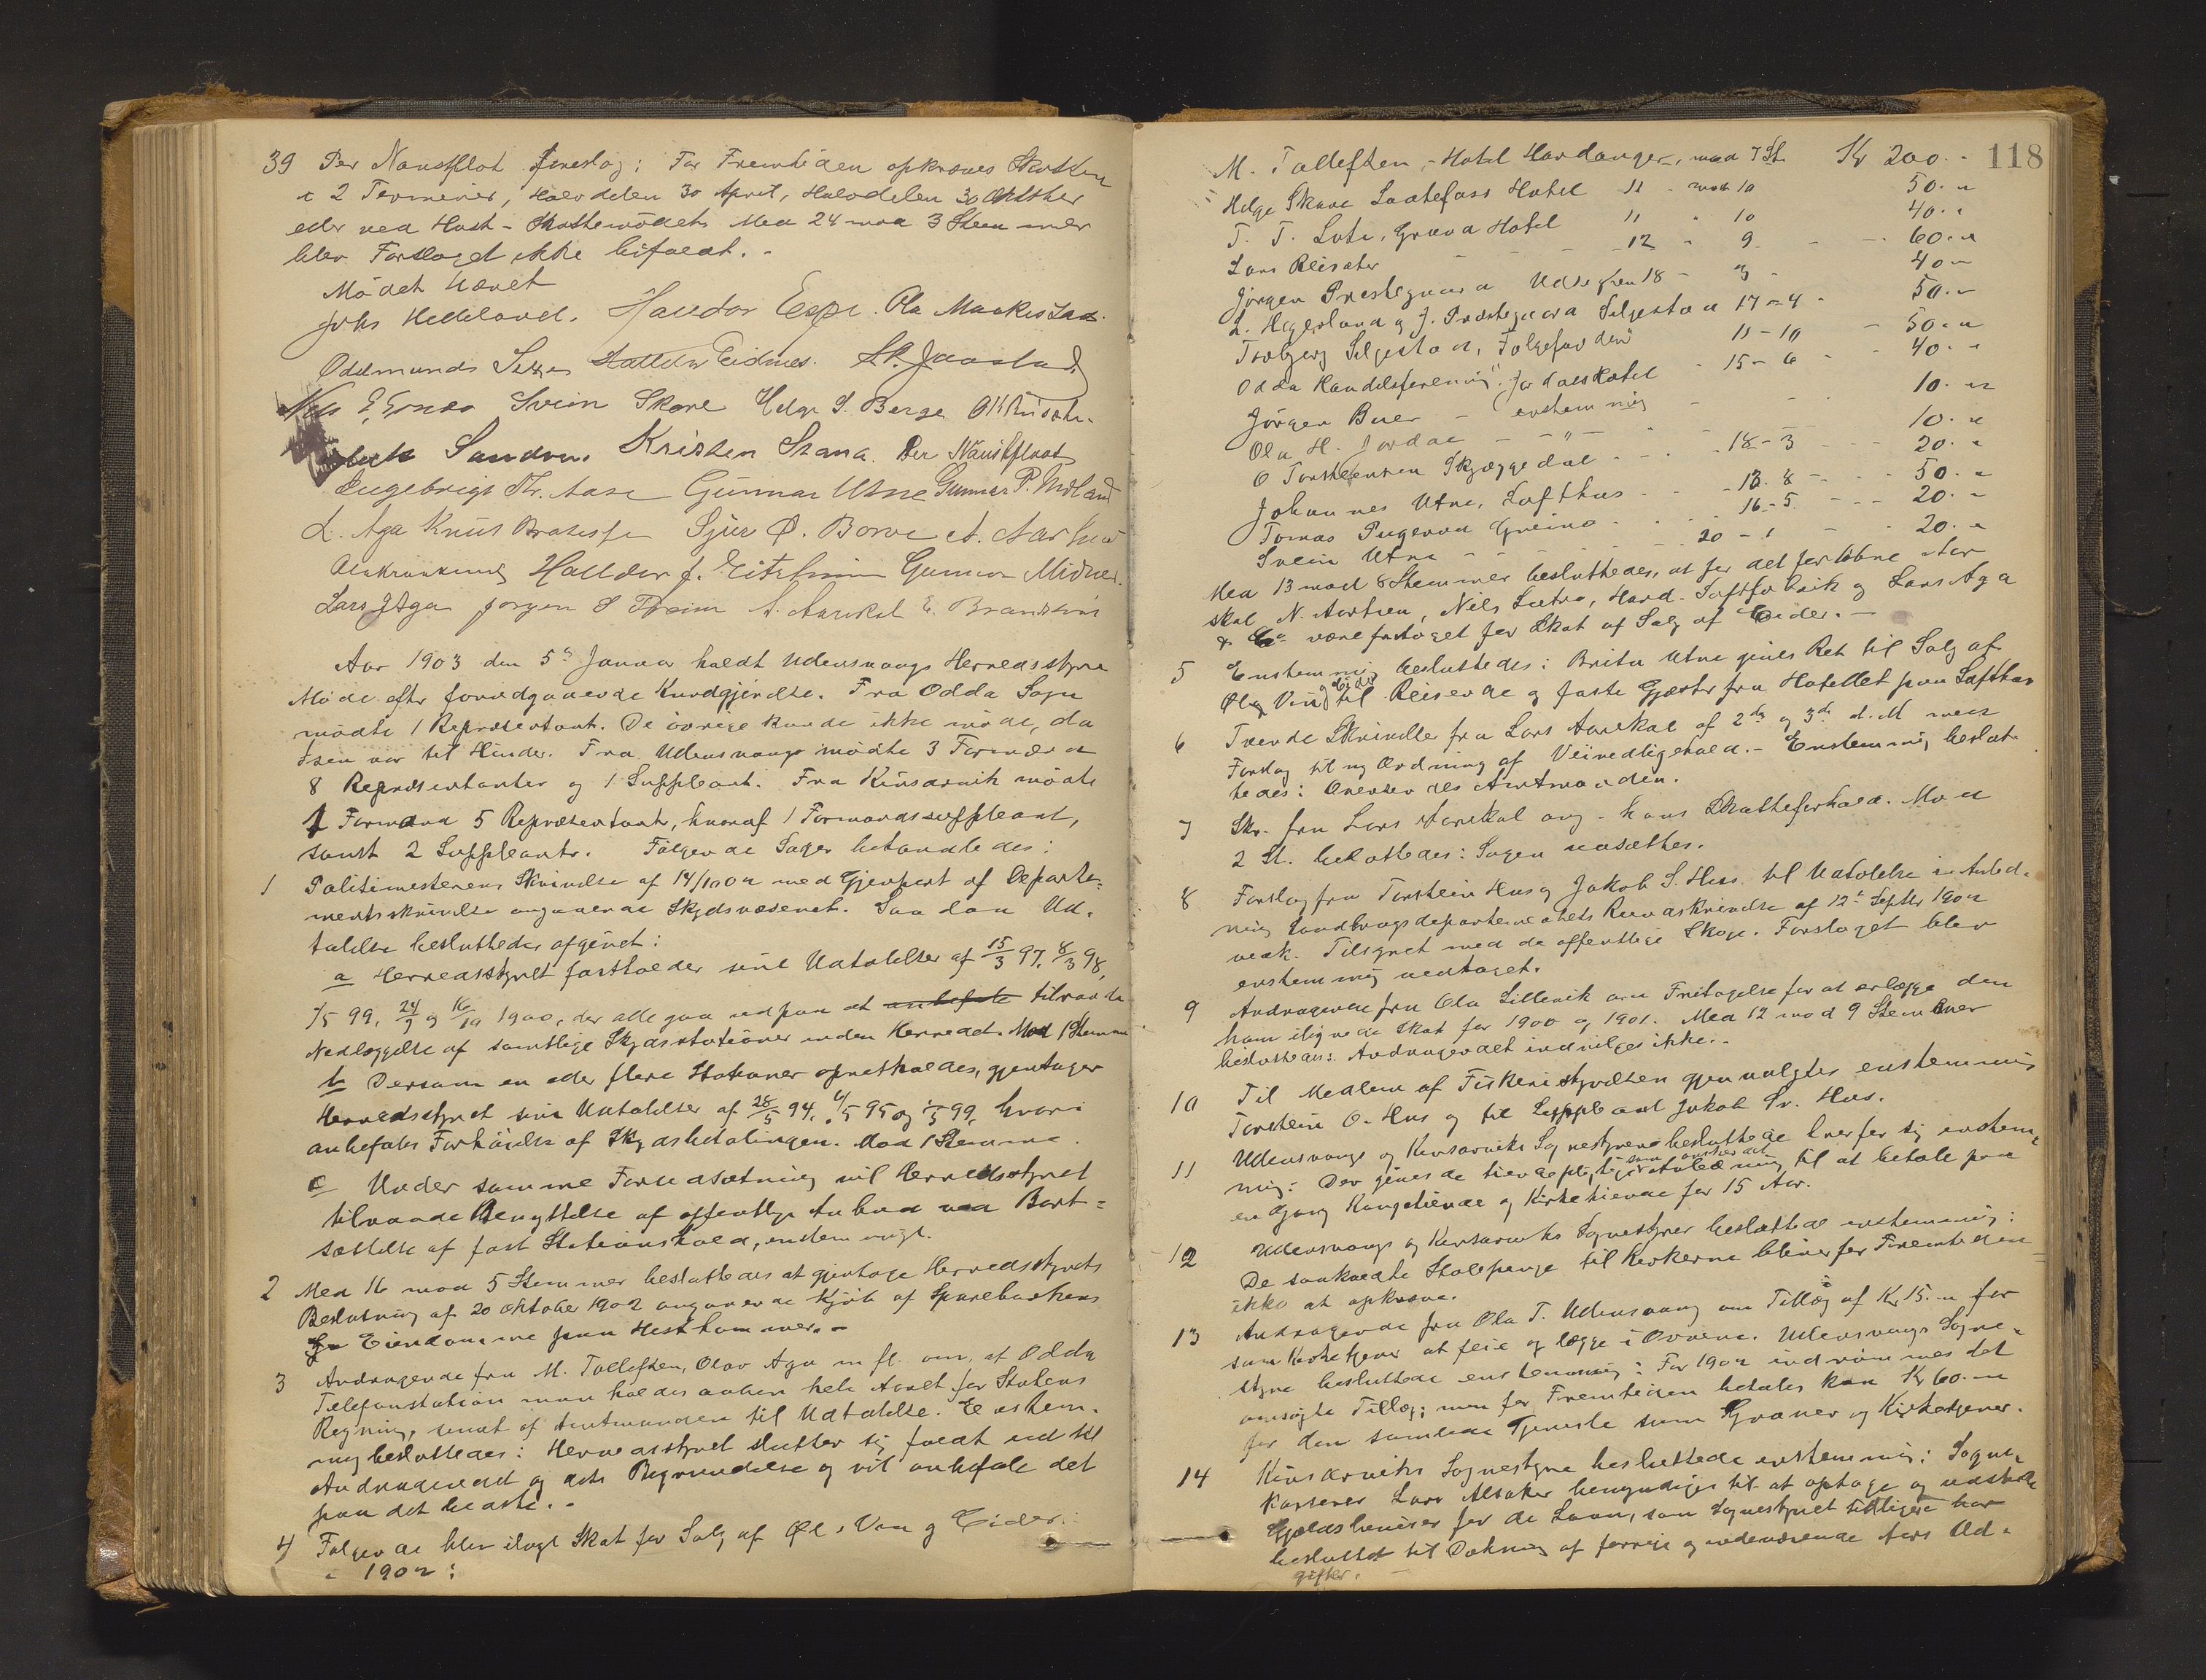 39 Per Naustflot foreslog: For Fremtiden opkræves Skatten
i 2 Terminer, Halvdelen 30 April, Halvdelen 30 Oktober
eller ved Høst-Skattemødet. Med 24 mod 3 Stemmer
blev Forslaget ikke bifaldt.
Mødet hævet
Johs Hedeland. Haldor Espe. Ola Maakestad.
Oddmund Halldor Eidnes. Jaastad
Nils Svein Skare Helge S. Berge
Sandven Kristen Skara. Per Naustflaat
Engebrigt Th. Aase Gunnar Utne Gunnar P. Midland
L. Aga Knut Sjur Ø. Borve A. Aarhus
Halldor J. Eitrheim Gunnar Midnes.
Lars J Aga Jørgen S Freim A. Aarekol E. Brandstveit
Aar 1903 den 5te Januar holdt Udensvangs Herredsstyre
Møde efter forudgaaende Kundgjørelse. Fra Odda Sogn
mødte 1 Repræsentant. De øvrige kunde ikke møde, da
Isen var til Hinder. Fra Udensvang mødte 3 Formænd
8 Repræsentanter og 1 Suppleant. Fra Kinsarvik mødte
1 Formand 5 Repræsentanter, hvoraf 1 Formandssuppleant,
samt 2 Suppleanter. Følgende Sager behandledes:
1 Politimesterens Skrivelse af 14/10 02 med Gjenpart af Departe-
mentsskrivelse angaaende Skydsvæsenet. Saadan Ud-
talelse besluttedes afgivet:
a Herredsstyret fastholder sine Udtalelser af 15/3 97, 8/3 98,
1/5 99, 24/9 og 16/10 1900, der alle gaa ud paa at anbefale tilraade
Nedlæggelse af samtlige Skydsstationer inden Herredet. Mod 1 Stemme
b Dersom en eller flere Stationer opretholdes, gjentager
Herredsstyret sine Udtalelser af 28/5 94, 4/5 95 og 1/5 99, hvori
anbefales Forhøielse af Skydsbetalingen. Mod 1 Stemme.
c Under samme Forudsætning vil Herredsstyret
tilraade Benyttelse af offentlige Anbud ved Bort-
sættelse af fast Stationshold, enstemmigt.
2 Med 16 mod 5 Stemmer besluttedes at gjentage Herredsstyrets
Beslutning af 20 Oktober 1902 angaaende Kjøb af Sparebankens
Eiendomme paa Hesthammer.
3 Andragende fra M. Tollefsen, Olav Aga m fl. om, at Odda
Telefonstation maa holdes aaben hele Aaret for Statens
Regning, sendt af Amtmanden til Udtalelse. Enstem-
mig besluttedes: Herredsstyret slutter sig fuldt ud til
Andragendet og dets Begrundelse og vil anbefale det
paa det bedste.
4 Følgende blev ilagt Skat for Salg af Øl, Vin og Cider
i 1902:
118
M. Tollefsen, Hotel Hardanger, mod 7 St. Kr 200.-
Helge Skare Laatefoss Hotel 11 - mod 10 50.-
T. T. Lote, Grønd Hotel 11 - 10 40.-
Lars Reisæter 12 - 9 60.-
Jørgen Prestegaard 18 - 3 40.-
L. Hegerland og J. Præstegaard Seljestad 17-4 50.-
Torbjørg Seljestad, "Folgefonden" 11-10 50.-
Odda Handelsforening, Jordalshotel 15-6 40.-
Jørgen Buer - enstemmig 10.-
Ola H. Jordal - " - 10.-
O Torsteinsen Skjæggedal 18-3 20.-
Johannes Utne, Lofthus 13-8 50.-
Tomas Pugerud Greino 16-5 20.-
Svein Utne 20-1 20.-
Med 13 mod 8 Stemmer besluttedes, at for det forløbne Aar
skal N. Aarhun, Nils Lutro, Hard. Saftfabrik og Lars Aga
& Co være fritaget for Skat af Salg af Cider.
5 Enstemmig besluttedes: Brita Utne gives Ret til Salg af
Øl, Vin og Cider til Reisende og faste Gjæster fra Hotellet paa Lofthus
6 Tvende Skrivelser fra Lars Aarekol af 2den og 3die d.M. med
Forslag til ny Ordning af Veivedligehold. - Enstemmig beslut-
tedes: Oversendes Amtmanden.
7 Skr. fra Lars Aarekol ang. hans Skatteforhold. Mod
2 St. besluttedes: Sagen udsættes.
8 Forslag fra Torstein Hus og Jakob S. Hus til Udtalelse i Anled-
ning Landbrugsdepartementets Rundskrivelse af 12te Septbr 1902
vedk. Tilsynet med de offentlige Skoge. Forslaget blev
enstemmig vedtaget.
9 Andragende fra Ola Lillevik om Fritagelse for at erlægge den
ham ilignede Skat for 1900 og 1901. Med 12 mod 9 Stemmer
besluttedes: Andragendet indvilges ikke.
10 Til Medlem af Fiskeristyrelsen gjenvalgtes enstemmig
Torstein O. Hus og til Suppleant Jakob Sv. Hus.
11 Udensvangs og Kinsarviks Sognestyrer besluttede hver for sig enstem-
mig: Der gives de tiendepligtige som ønsker det Anledning til at betale paa
en Gang Kongetiende og Kirketiende for 15 Aar.
12 Udensvangs og Kinsarviks Sognestyrer besluttede enstemmig:
De saakaldte Stolepenge til Kirkerne bliver for Fremtiden
ikke at opkræve.
13 Andragende fra Ola T. Udensvang om Tillæg af Kr 15.- for
som Kirketjener at feie og lægge i Ovnene. Udensvangs Sogne-
styre besluttede enstemmig: For 1902 indrømmes det
ansøgte Tillæg; men for Fremtiden betales kun Kr 60.-
for den samlede Tjeneste som Graver og Kirketjener.
14 Kinsarviks Sognestyre besluttede enstemmig: Sogne-
kasserer Lars Alsaker bemyndiges til at optage og udstede
Gjeldsbeviser for de Laan, som Sognestyret tidligere har
besluttet til Dækning af forrige og indeværende Aars Ud-
gifter.